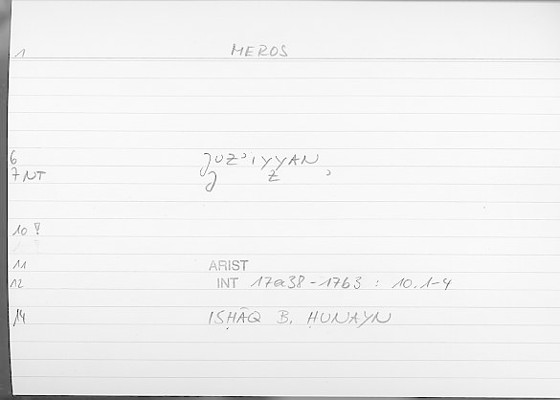 1 MEROS
6 JUZʾIYYAN
7 NT J Z ʾ
10 ?
11 ARIST
12 INT 17a38-17b3 : 10.1-4
14 ISḤĀQ B. ḤUNAYN